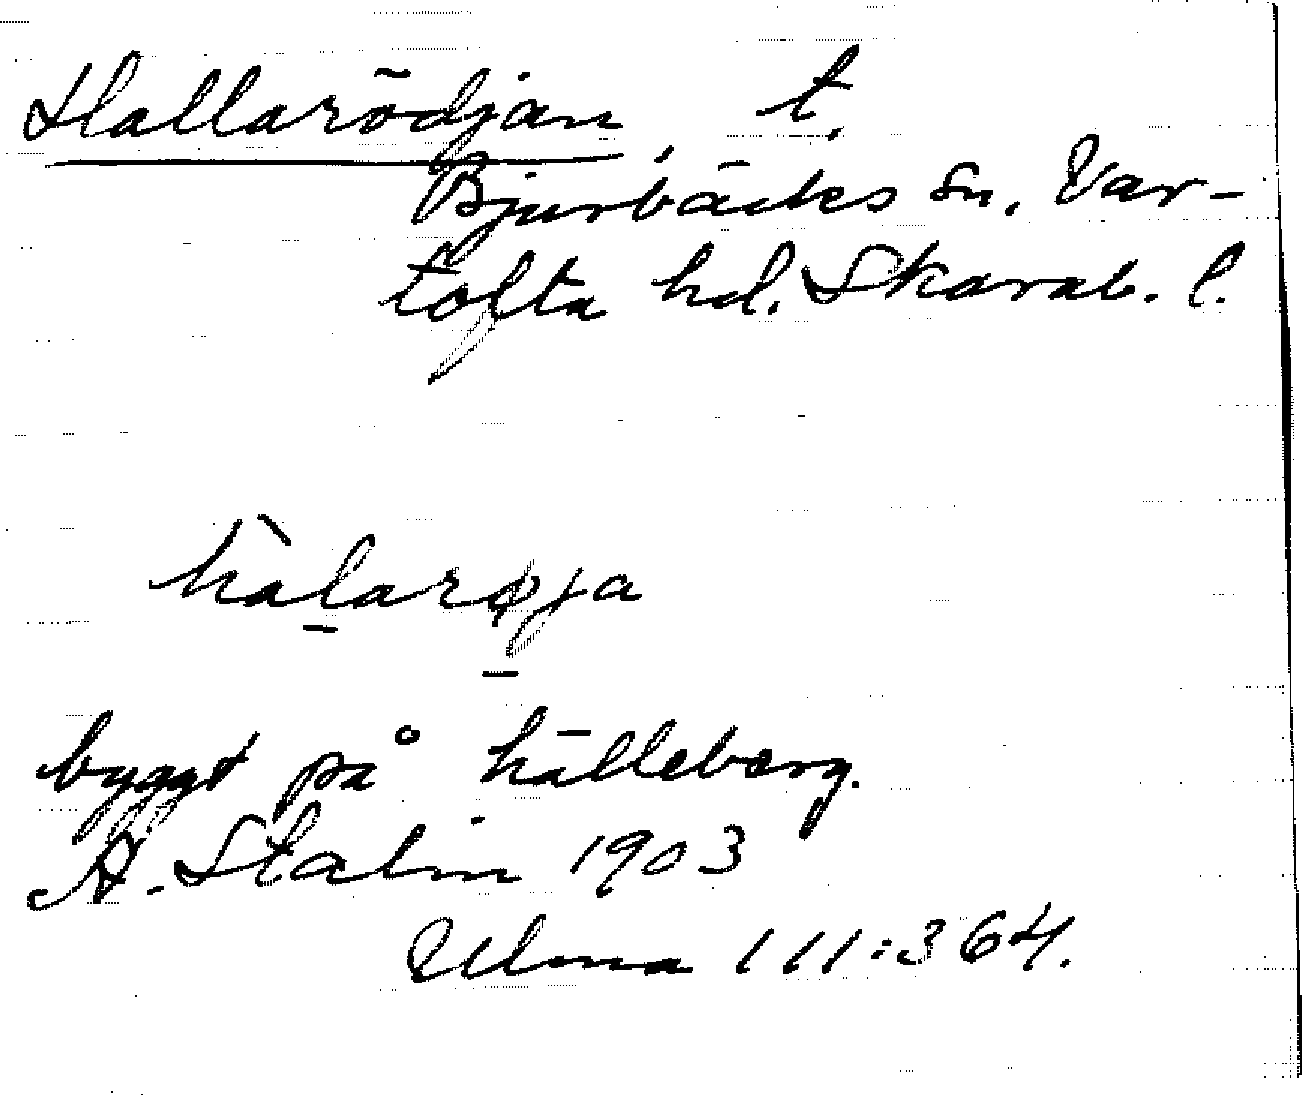 Hallarödjan t.
Bjurbäcks sn. Var-
tofta hd. Skarab. l.
hàlarøja
byggt på hälleberg.
A. Stalin 1903
Ulma 111:364.